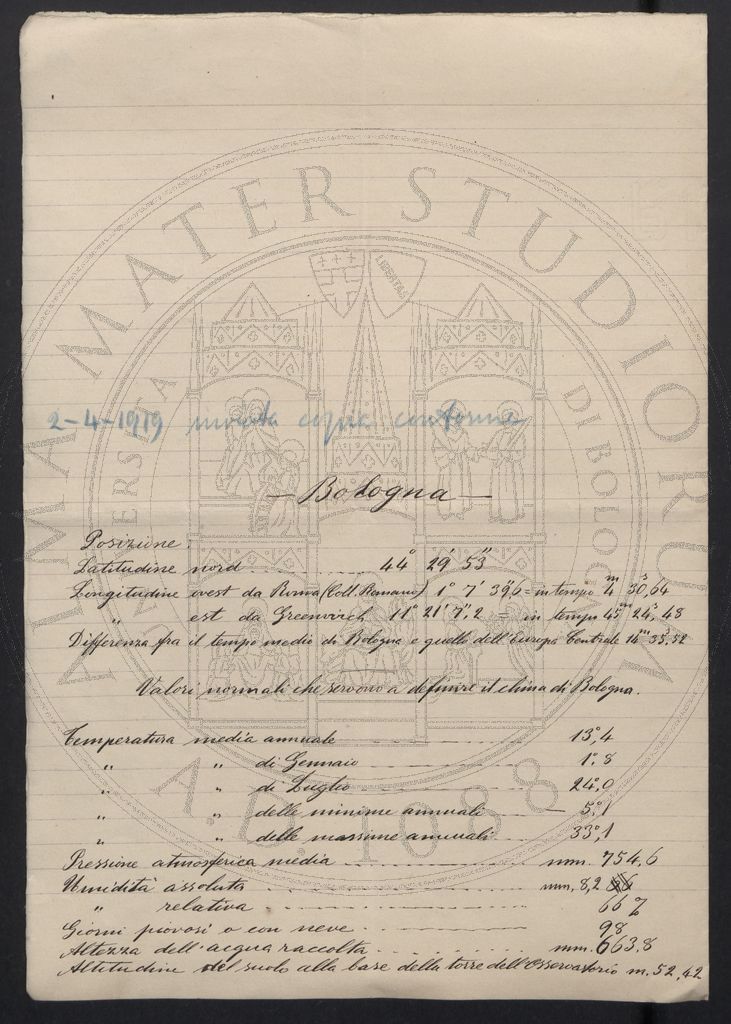 ALMA MATER STUDIORUM
UNIVERSITA DI BOLOGNA
LIBERTAS
A.D. 1088
2-4-1919 inviata copia conforme
— Bologna —
Posizione:
Latitudine nord ........ 44° 29' 53"
Longitudine ovest da Roma (Coll. Romano) 1° 7' 39",6 = in tempo 4m 30s,64
" est da Greenwich 11° 21' 7",2 = in tempo 45m 24s,48
Differenza fra il tempo medio di Bologna e quello dell'Europa Centrale 14m 35s,52
Valori normali che servono a definire il clima di Bologna.
Temperatura media annuale 13°,4
" " di Gennaio 1°,8
" " di Luglio 24°,0
" " delle minime annuali — 5°,1
" " delle massime annuali 33°,1
Pressione atmosferica media mm. 754,6
Umidità assoluta mm. 8,2
" relativa 66
Giorni piovosi o con neve 98
Altezza dell'acqua raccolta mm. 663,8
Altitudine del suolo alla base della torre dell'Osservatorio m. 52,42